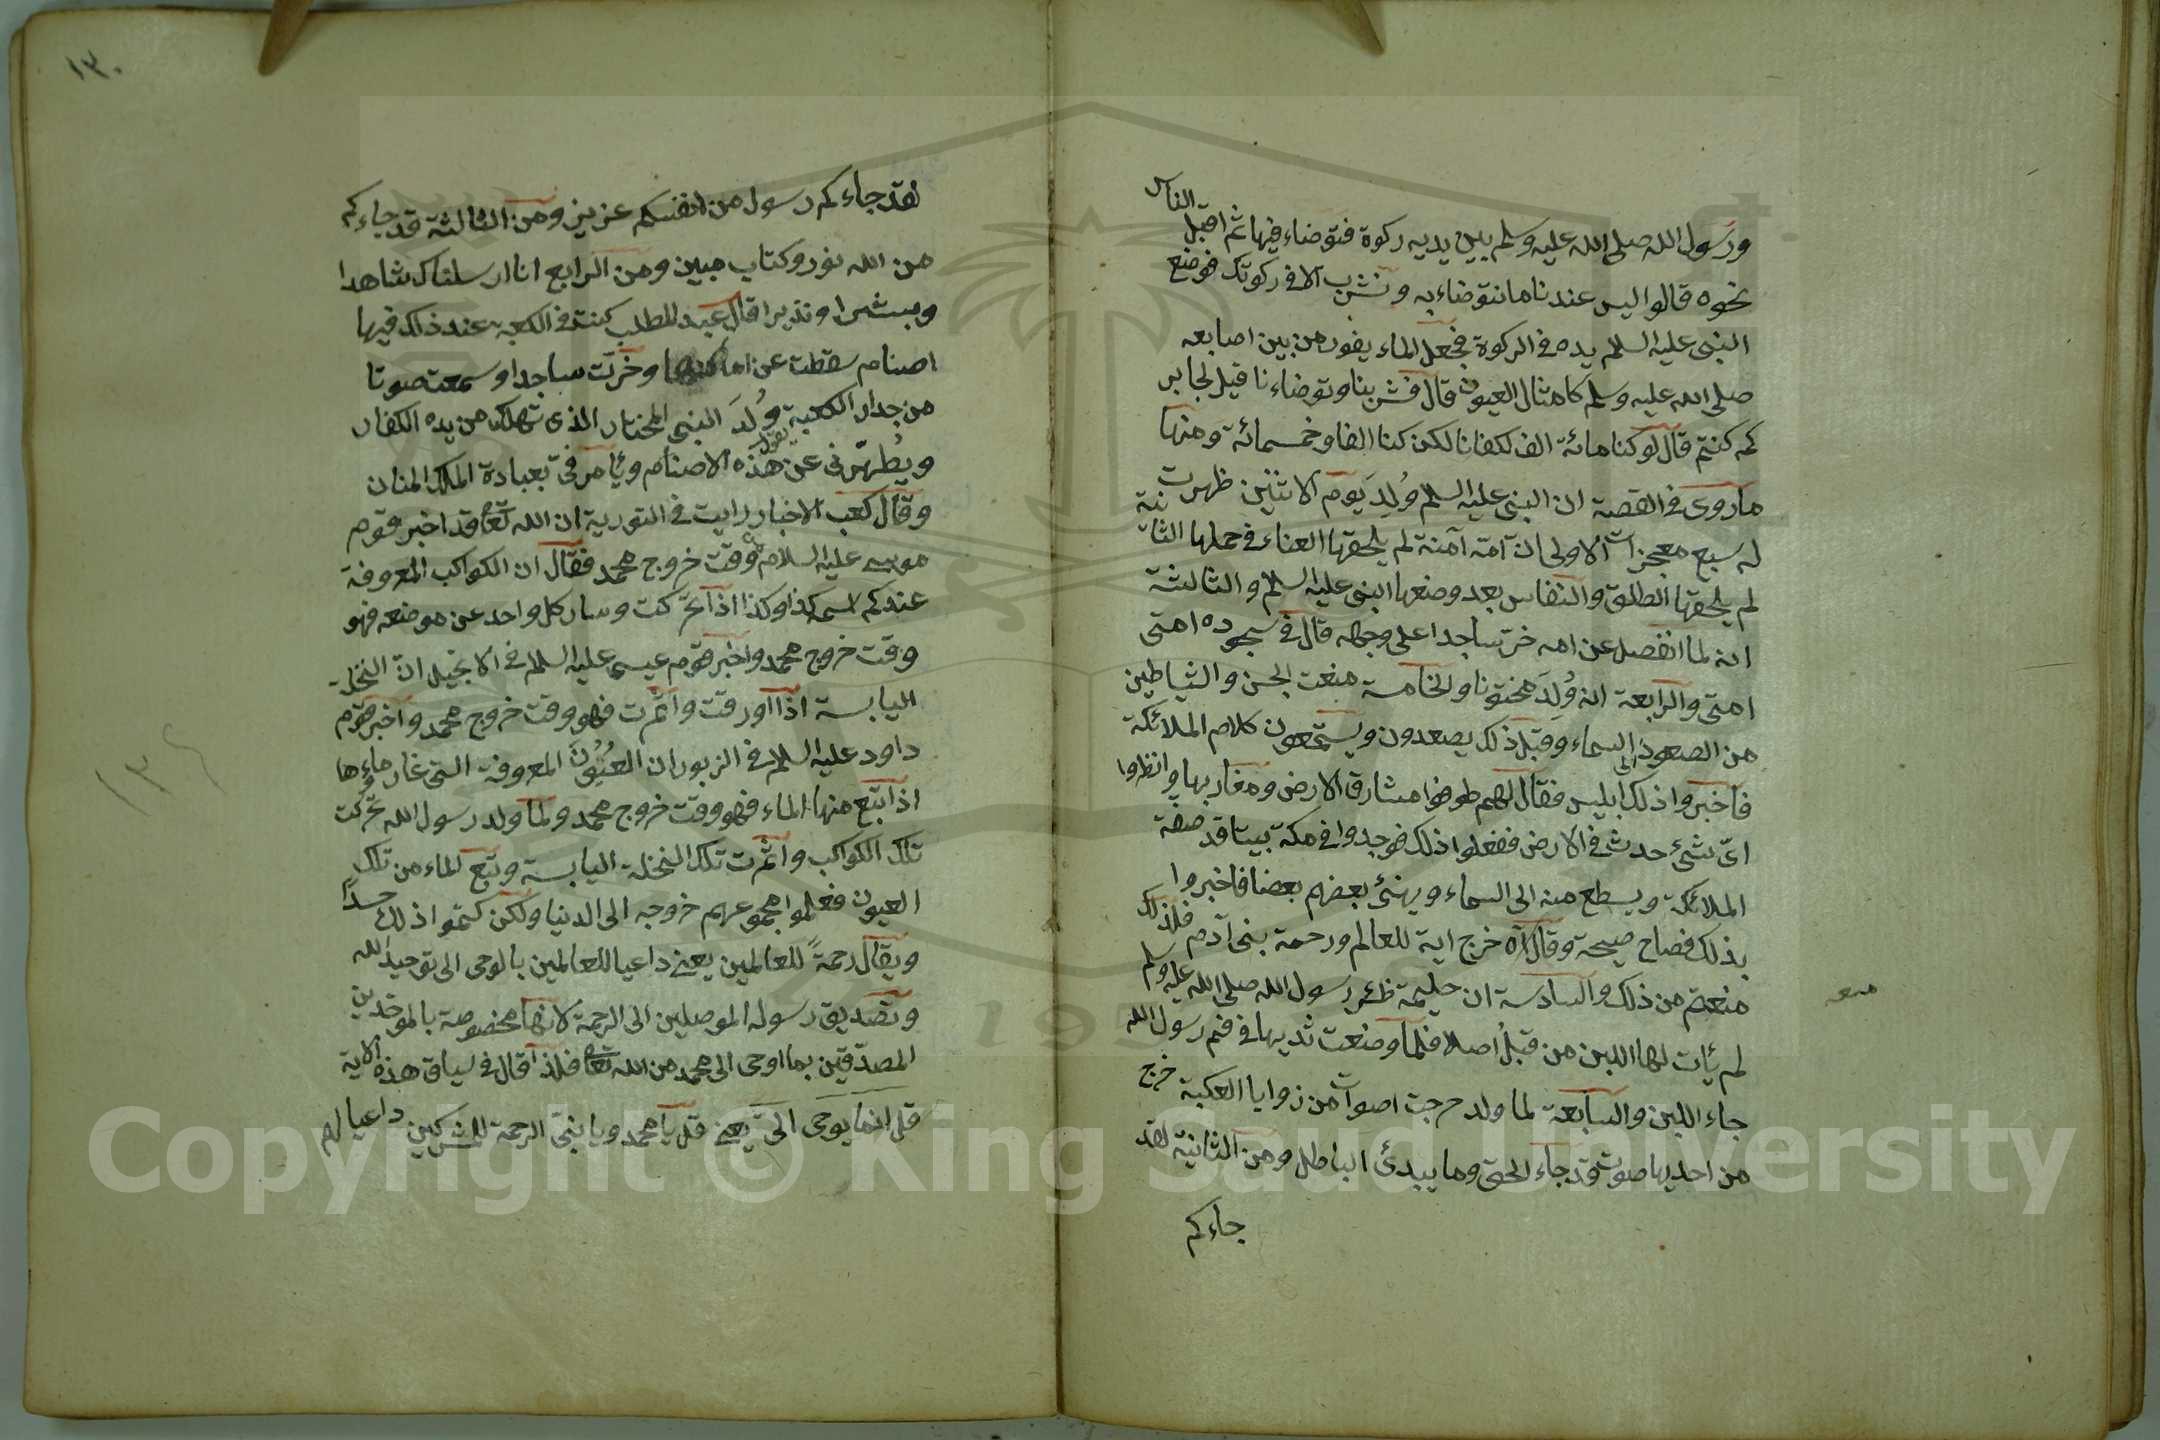 ورسول الله صلى الله عليه وسلم بين يديه ركوة فتوضاء فيها ثم اقبل الناس
نحوه قالوا ليس عندنا ما نتوضاء به ونشرب الا في ركوتك فوضع
النبى عليه السلم يده فى الركوة فجعل الماء يفور من بين اصابعه
صلى الله عليه وسلم كامثال العيون قال فشربنا وتوضاءنا قيل لجابر
كم كنتم قال لو كنا مائة الف لكفانا لكن كنا الفا وخمسمائة ومنها
ما روى فى القصة ان النبى عليه السلم وُلِدَ يوم الاثنين ظهرت
له سبع معجزات الاولى ان آمّه آمنة لم يلحقها العناء فى حملها الثانية
لم يلحقها الطلق والنفاس بعد وضعها النبى عليه السلم والثالثة
انه لما انفصل عن امه خرّ ساجدا على وجهه قال فى سجوده امتى
امتى والرابعة انه وُلِدَ مختونا والخامسة منعت الجن والشياطين
من الصعود الى السماء وقبل ذلك يصعدون ويستمعون كلام الملائكة
فاخبروا ذلك ابليس فقال لهم طوفوا مشارق الارض ومغاربها وانظروا
اىّ شىء حدث فى الارض ففعلوا ذلك فوجدوا فى مكة بيتا قد صفه
الملائكة ويسطع منه الى السماء ويهنئ بعضهم بعضا فاخبروا
بذلك فصاح صيحة وقال آه خرج اية للعالم ورحمة بنى آدم فلذلك
منعتم من ذلك والسادسة ان حليمة ظئر رسول الله صلى الله عليه وسلم
لم يأت لها اللبن من قبل اصلا فلما وضعت ثديها فى فم رسول الله
جاء اللبن والسابعة لما ولد خرجت اصوات من زوايا الكعبة خرج
من احديها صوت قد جاء الحق وما يبدئ الباطل ومن الثانية لقد
جاءكم
١٣٠
لقد جاءكم رسول من انفسكم عزيز ومن الثالثة قد جاءكم
من الله نور وكتاب مبين ومن الرابع انا ارسلناك شاهدا
ومبشرا ونذيرا قال عبد المطلب كنت فى الكعبة عند ذلك فيها
اصنام سقطت عن اماكنها وخرّت ساجدا وسمعت صوتا
من جدار الكعبة يقول وُلدَ النبى المختار الذى تهلك من يده الكفار
ويُطهّرنى عن هذه الاصنام ويأمرنى بعبادة الملك المنان
وقال كعب الاخبار رايت فى التورية ان الله تعا قد اخبر قوم
موسى عليه السلام وقت خروج محمد فقال ان الكواكب المعروفة
عندكم اسمه كذا وكذا اذا تحرّكت وسار كل واحد عن موضعه فهو
وقت خروج محمد واخبر قوم عيسى عليه السلم فى الانجيل انّ النخلة
اليابسة اذا اورقت واثمرت فهو وقت خروج محمد واخبر قوم
داود عليه السلم فى الزبور ان العُيُونَ المعروفة التى غار ماءوها
اذا نبع منها الماء فهو وقت خروج محمد ولما ولد رسول الله تحرّكت
تلك الكواكب واثمرت تلك النخلة اليابسة ونبع الماء من تلك
العيون فعلموا مجموعهم خروجه الى الدنيا ولكن كتموا ذلك حسدًا
ويقال رحمةً للعالمين يعنى داعيا للعالمين بالوحى الى توحيد الله
وتصديق رسوله الموصلين الى الرحمة لانها مخصوصة بالموحّدين
المصدّقين بما اوحى الى محمد من الله تعا فلذا قال فى سياق هذه الاية
قل انما يوحى الىّ يعنى قل يا محمد ويا بنىّ الرحمة للمشركين داعيا لهم
Copyright © King Saud University